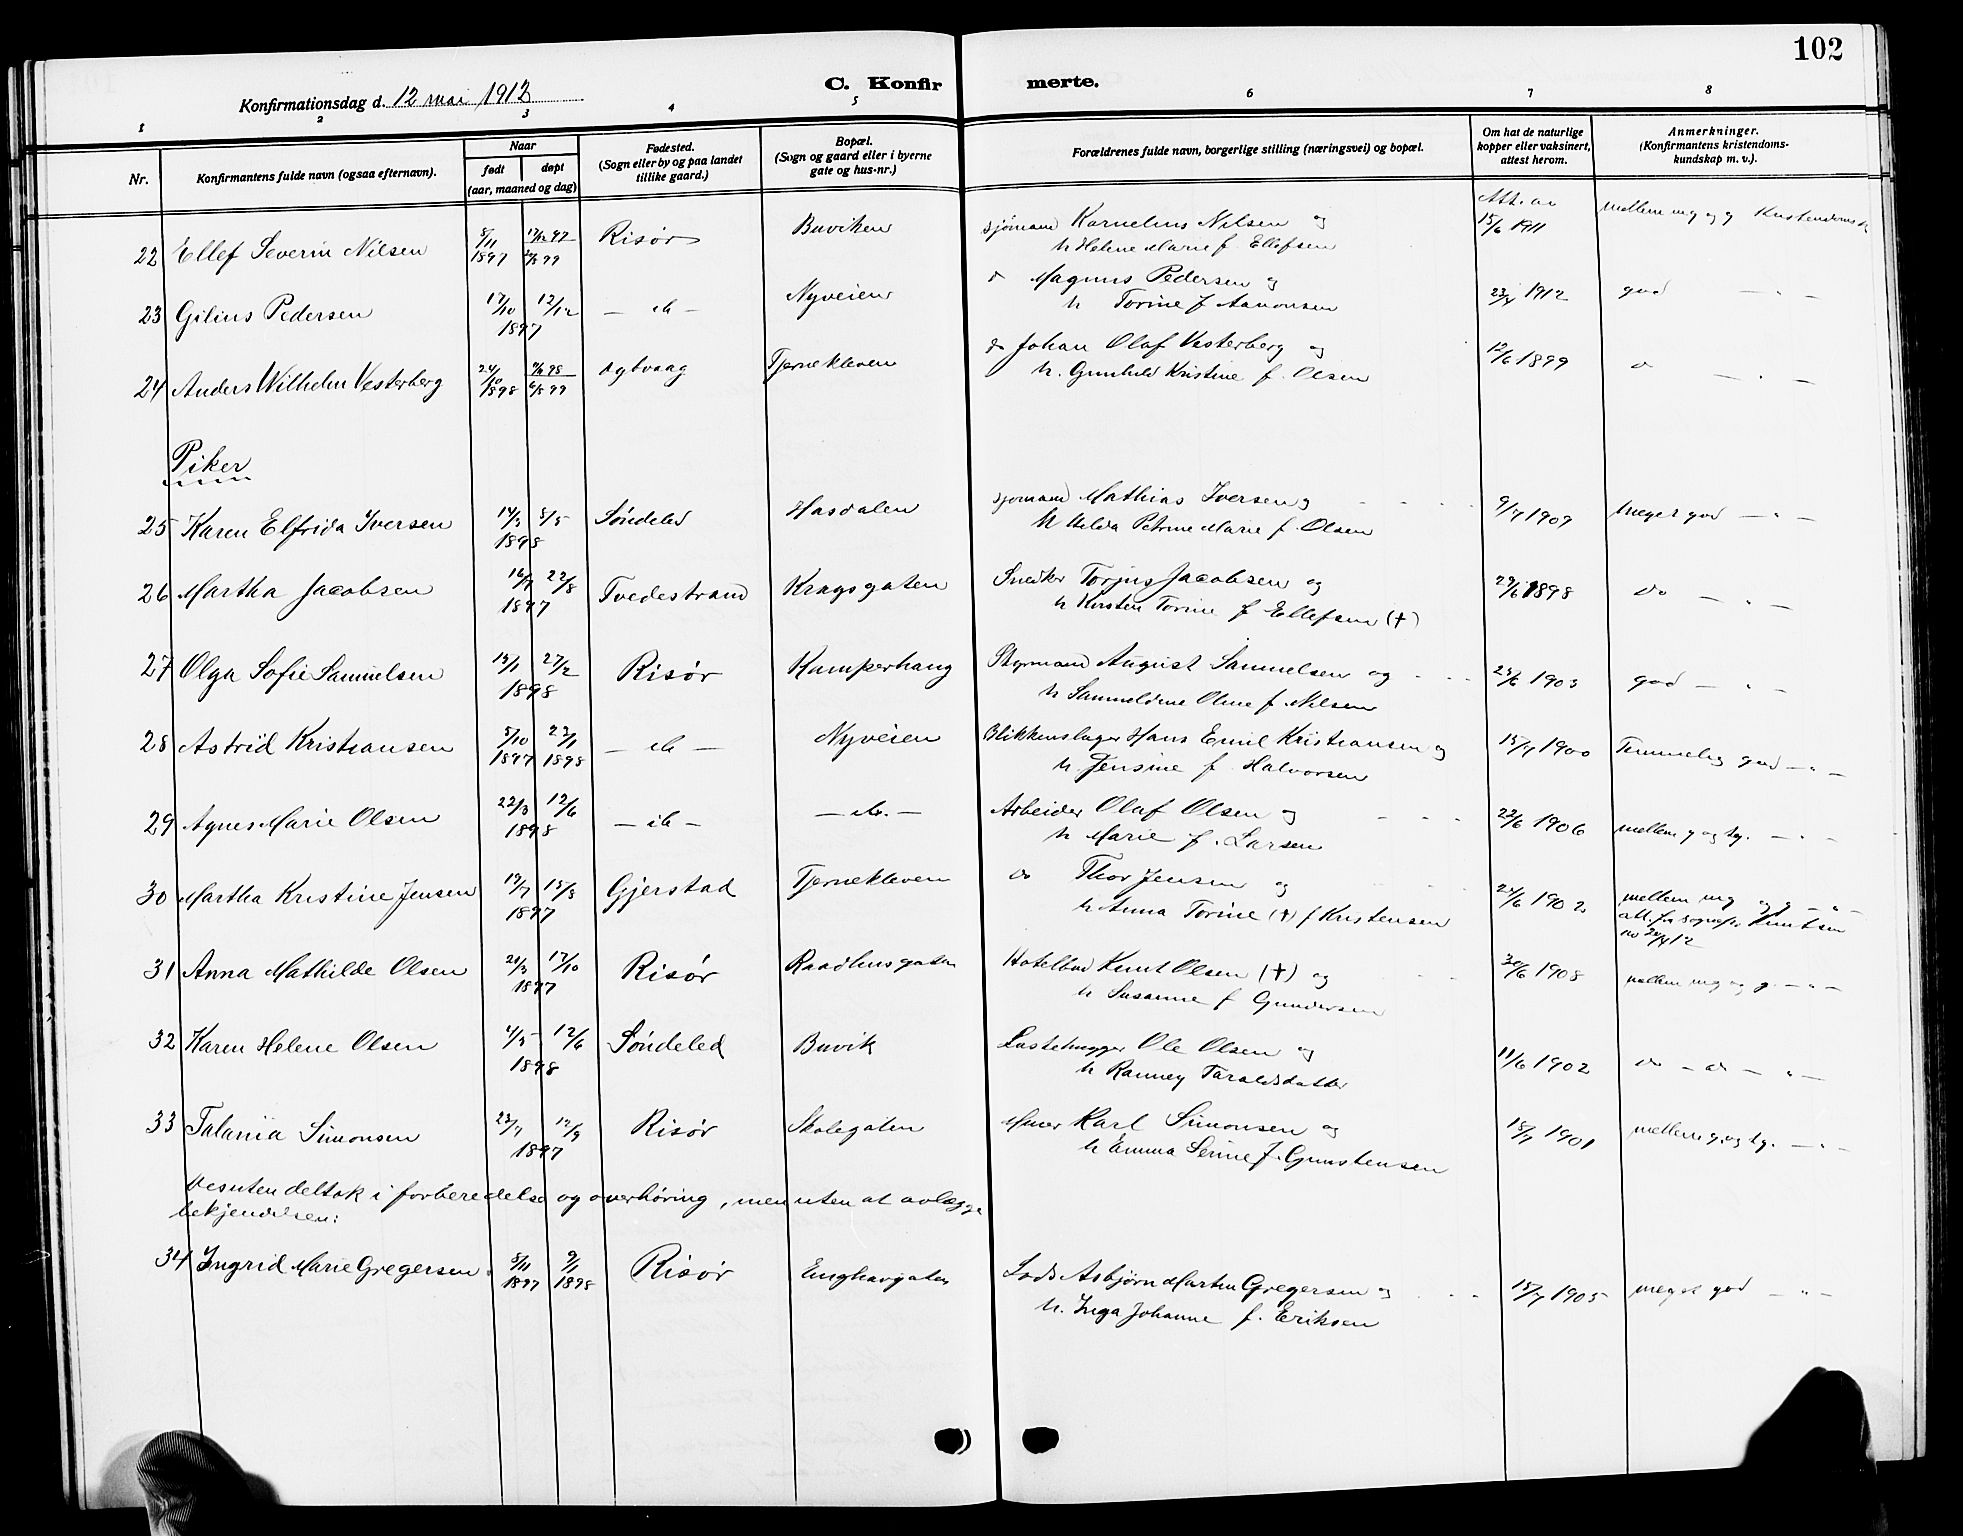 102
Konfirmationsdag d. 12 mai 1912
C. Konfirmerte.
1 2 3 4 5 6 7 8
Nr.
Konfirmantens fulde navn (ogsaa efternavn).
Naar
født døpt
(aar, maaned og dag)
Fødested.
(Sogn eller by og paa landet
tillike gaard.)
Bopæl.
(Sogn og gaard eller i byerne
gate og hus-nr.)
Forældrenes fulde navn, borgerlige stilling (næringsvei) og bopæl.
Om hat de naturlige
kopper eller vaksinert,
attest herom.
Anmerkninger.
(Konfirmantens kristendoms-
kundskap m. v.).
22 Ellef Severin Nilsen 8/11 1897 Risør Buviken sjømand Kornelius Nilsen og 15/6 1911 mellem mg og g Kristendomsk
h Helene Marie f. Ellefsen
23 Gilius Pedersen 17/10 12/12 1897 — ib — Nyveien do Magnus Pedersen og 1912 god — " —
h Torine f Aanonsen
24 Anders Wilhelm Vesterberg 1898 Dybvaag Tjernekleven do Johan Olaf Vesterberg og 12/6 1899 do — " —
h. Gunhild Kristine f. Olsen
Piker
25 Karen Elfrida Iversen 14/3 8/5 1898 Søndeled Hasdalen sjømand Mathias Iversen og 9/7 1909 Meget god — " —
h Hilda Petrine Marie f. Olsen
26 Martha Jacobsen 16/7 22/8 1897 Tvedestrand Kragsgaten Snedker Torjus Jacobsen og 29/6 1898 do — " —
h Kirsten Torine f Ellefsen (†)
27 Olga Sofie Samuelsen 13/1 27/2 1898 Risør Kamperhaug Styrmand August Samuelsen og 1903 god — " —
h Samueldine Oline f. Nilsen
28 Astrid Kristiansen 8/10 1897 1898 — ib — Nyveien Blikkenslager Hans Emil Kristiansen og 1900 Temmelig god — " —
h. Jensine f. Halvorsen
29 Agnes Marie Olsen 22/3 12/6 1898 — ib — — ib. — Arbeider Olaf Olsen og 22/6 1906 mellem g og tg. — " —
h Marie f. Larsen
30 Martha Kristine Jensen 1897 Gjerstad Tjernekleven do Thor Jensen og 1902 mellem mg og g — " —
h Anna Torine (†) f Kristensen
att. fra sognepr. Knutsen
31 Anna Mathilde Olsen 17/10 1897 Risør Raadhusgaten Hotelbud Knut Olsen (†) og 30/6 1908 mellem mg og g. — " —
h Susanne f Gundersen
32 Karen Helene Olsen 4/5 12/6 1898 Søndeled Buvik Lastehugger Ole Olsen og 11/6 1902 do — do — " —
h Ranney Taraldsdatter
33 Talania Simonsen 1897 Risør Skolegaten Murer Karl Simonsen og 18/7 1901 mellem g. og tg. — " —
h Emma Serine f. Gunstensen
Desuten deltok i forberedelse og overhøring, men uten at avlægge
bekjendelsen:
34 Ingrid Marie Gregersen 8/11 1897 9/1 1898 Risør Enghavgaten Lods Asbjørn Martin Gregersen og 15/7 1905 meget god — " —
h. Inga Johanne f. Eriksen